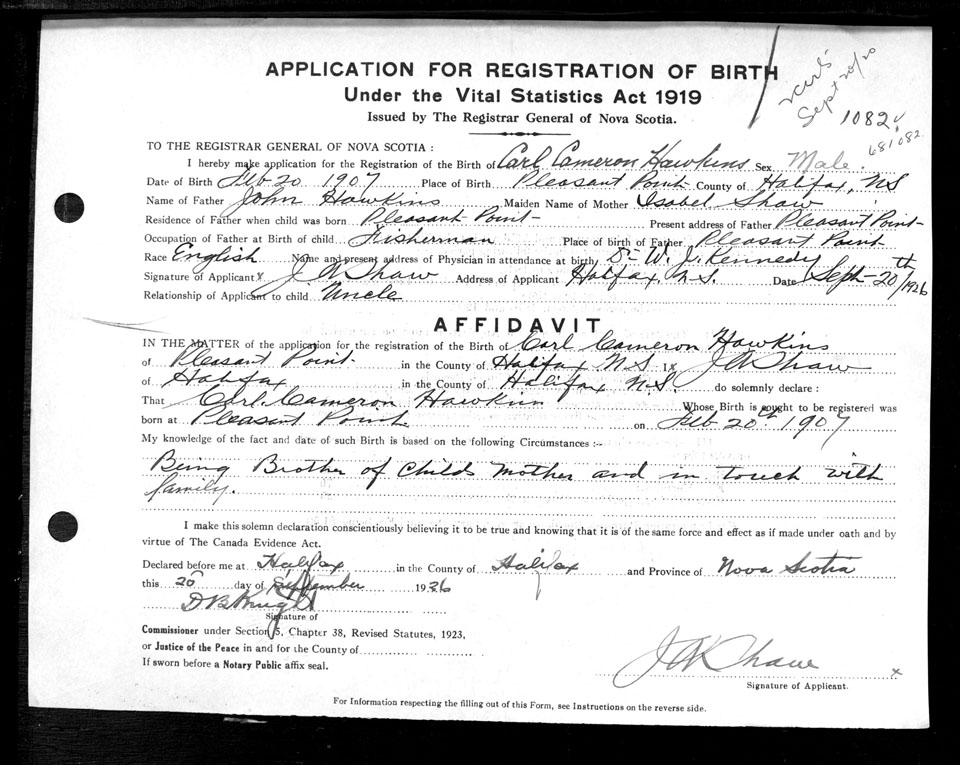 APPLICATION FOR REGISTRATION OF BIRTH
Under the Vital Statistics Act 1919
Issued by The Registrar General of Nova Scotia.
Sept 20/20
1082
681082
TO THE REGISTRAR GENERAL OF NOVA SCOTIA :
I hereby make application for the Registration of the Birth of Carl Cameron Hawkins Sex Male.
Date of Birth Feb 20 1907 Place of Birth Pleasant Point County of Halifax, NS
Name of Father John Hawkins Maiden Name of Mother Isabel Shaw
Residence of Father when child was born Pleasant Point Present address of Father Pleasant Point
Occupation of Father at Birth of child Fisherman Place of birth of Father Pleasant Point
Race English Name and present address of Physician in attendance at birth Dr W. J. Kennedy
Signature of Applicant x J A Shaw Address of Applicant Halifax, N.S. Date Sept 20th/1926
Relationship of Applicant to child Uncle
AFFIDAVIT
IN THE MATTER of the application for the registration of the Birth of Carl Cameron Hawkins
of Pleasant Point in the County of Halifax N.S. I x J A Shaw
of Halifax in the County of Halifax N.S. do solemnly declare :
That Carl Cameron Hawkins Whose Birth is sought to be registered was
born at Pleasant Point on Feb 20th 1907
My knowledge of the fact and date of such Birth is based on the following Circumstances :-
Being Brother of Childs Mother and in touch with
family.
I make this solemn declaration conscientiously believing it to be true and knowing that it is of the same force and effect as if made under oath and by
virtue of The Canada Evidence Act.
Declared before me at Halifax in the County of Halifax and Province of Nova Scotia
this 20 day of September 1926
D B Knight
Signature of
Commissioner under Section 5, Chapter 38, Revised Statutes, 1923,
or Justice of the Peace in and for the County of
If sworn before a Notary Public affix seal.
J A Shaw x
Signature of Applicant.
For Information respecting the filling out of this Form, see Instructions on the reverse side.